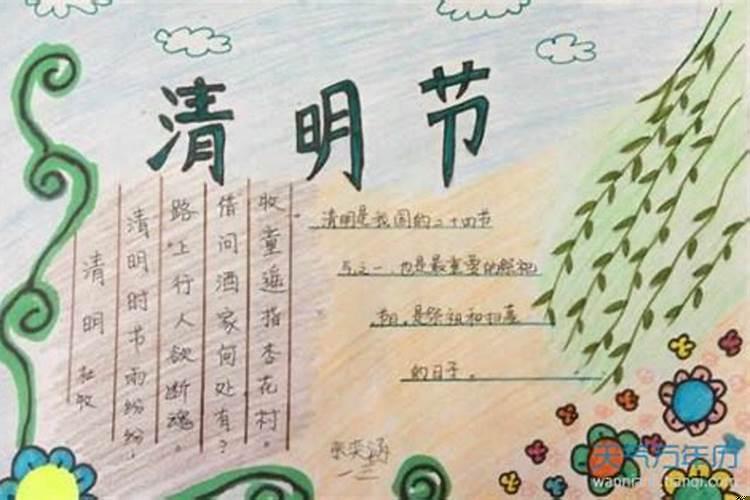 清明节
清明 杜牧
清明时节雨纷纷,
路上行人欲断魂。
借问酒家何处有?
牧童遥指杏花村。
清明是我国的二十四节
气之一,也是最重要的祭祀
节日,是祭祖和扫墓
的日子。
天气万年历
wannianli.tianqi.com